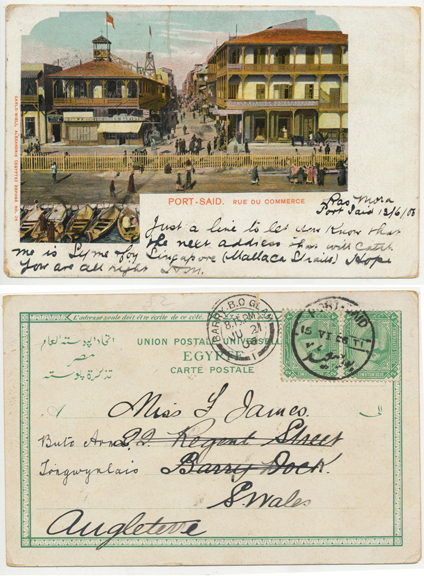 PORT-SAID. RUE DU COMMERCE
Ras Mora
Port Said 13/6/06
Just a line to let you know that
the next address that will catch
me is Singapore (Mallaca Straits) Hope
you are all right
L'adresse doit être écrite de ce côté
UNION POSTALE UNIVERSELLE
EGYPTE
CARTE POSTALE
مصر
تذكرة بوسته
BARRY. B.O GLAM
JU 21
06
1
PORT-SAID
Miss J James.
22 Regent Street
Tongwynlais
Barry Dock.
S. Wales
Angleterre